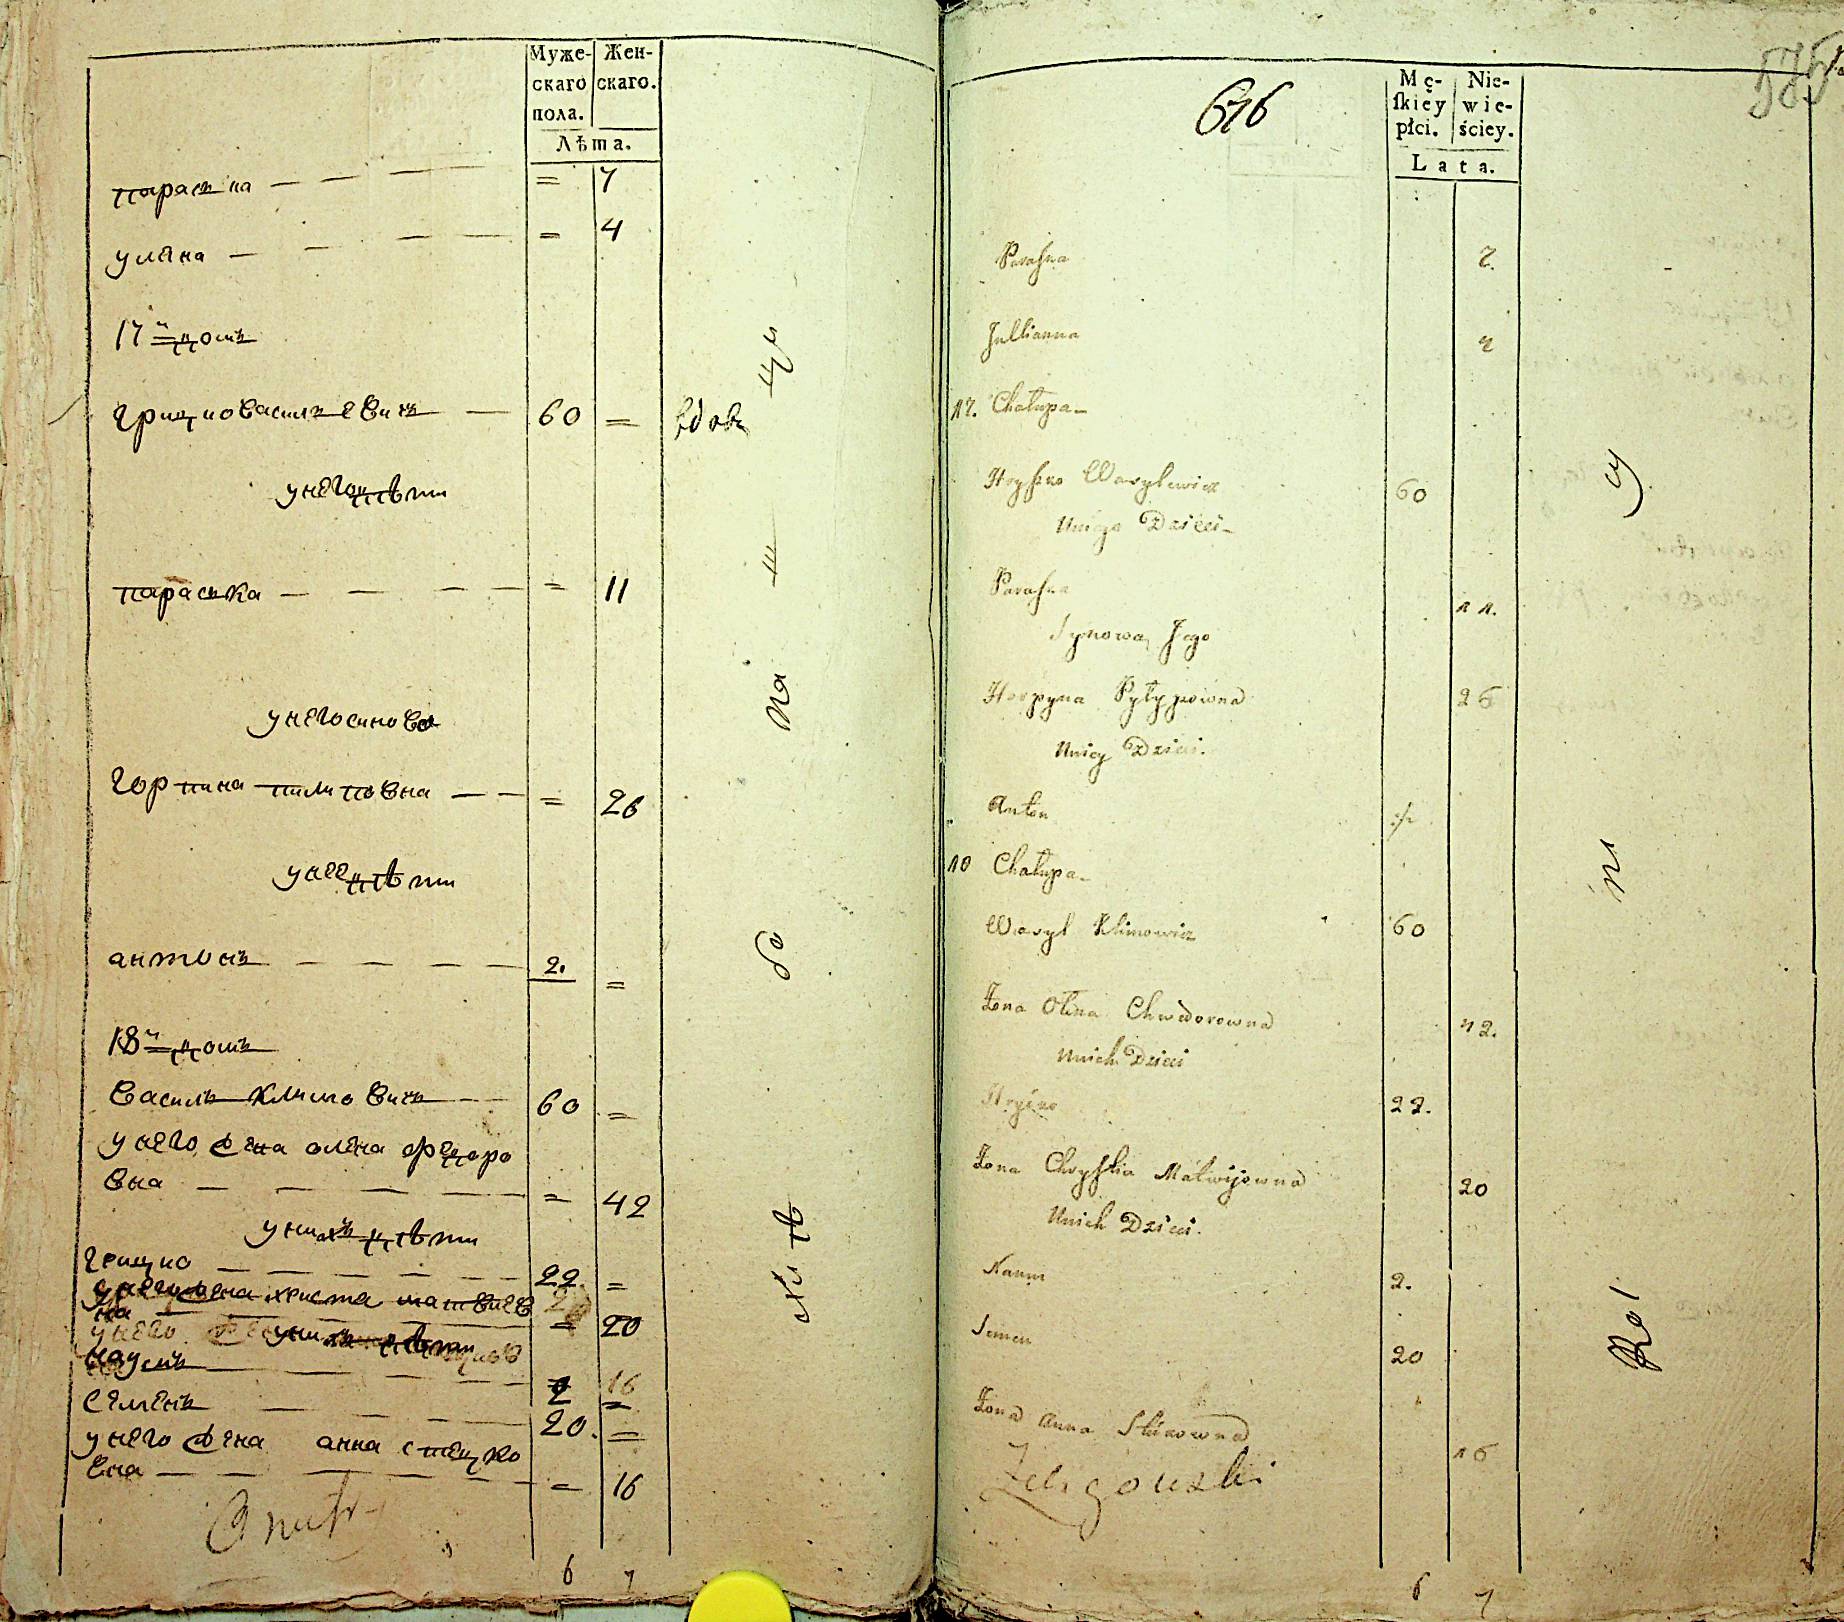 Муже-
скаго
пола.
Жен-
скаго.
Лѣта.
параска — — — = 7
уляна — — — — = 4
17й домъ
грицко василѣевич — 60 = вдовъ
у него дѣти
параска — — — — = 11
у него синова
горпина пилиповна — — = 26
у нее дѣти
антонъ — — — — 2. =
18й домъ
василь климовичъ — — 60 =
у него жена олена федоро
вна — — — — = 42
у нихъ дѣти
грицко — — — — 22. =
у него жена христа матвиев
на — = 20
у нихъ дѣти
наумъ — — — 2 =
семенъ — — — 20. =
у него жена анна стецко
вна — — — — = 16
6 7
616
575
Mę-
ſkiey
płci.
Nie-
wie-
ściey.
Lata.
Paraſka 7.
Jullianna 4
17. Chałupa
Hryſzko Wasylewicz 60
Uniego Dzieci
Paraſka 11.
Synowa Jego
Horpyna Pyłypowna 26
Uniey Dzieci.
Anton
18 Chałupa
Wasyl Klimowicz 60
Żona Ołena Chwedorowna 42.
Unich Dzieci
Hryćko 22.
Żona Chryſtia Matwijowna 20
Unich Dzieci.
Naum 2.
Semen 20
Żona Anna Stećkowna 16
6 7